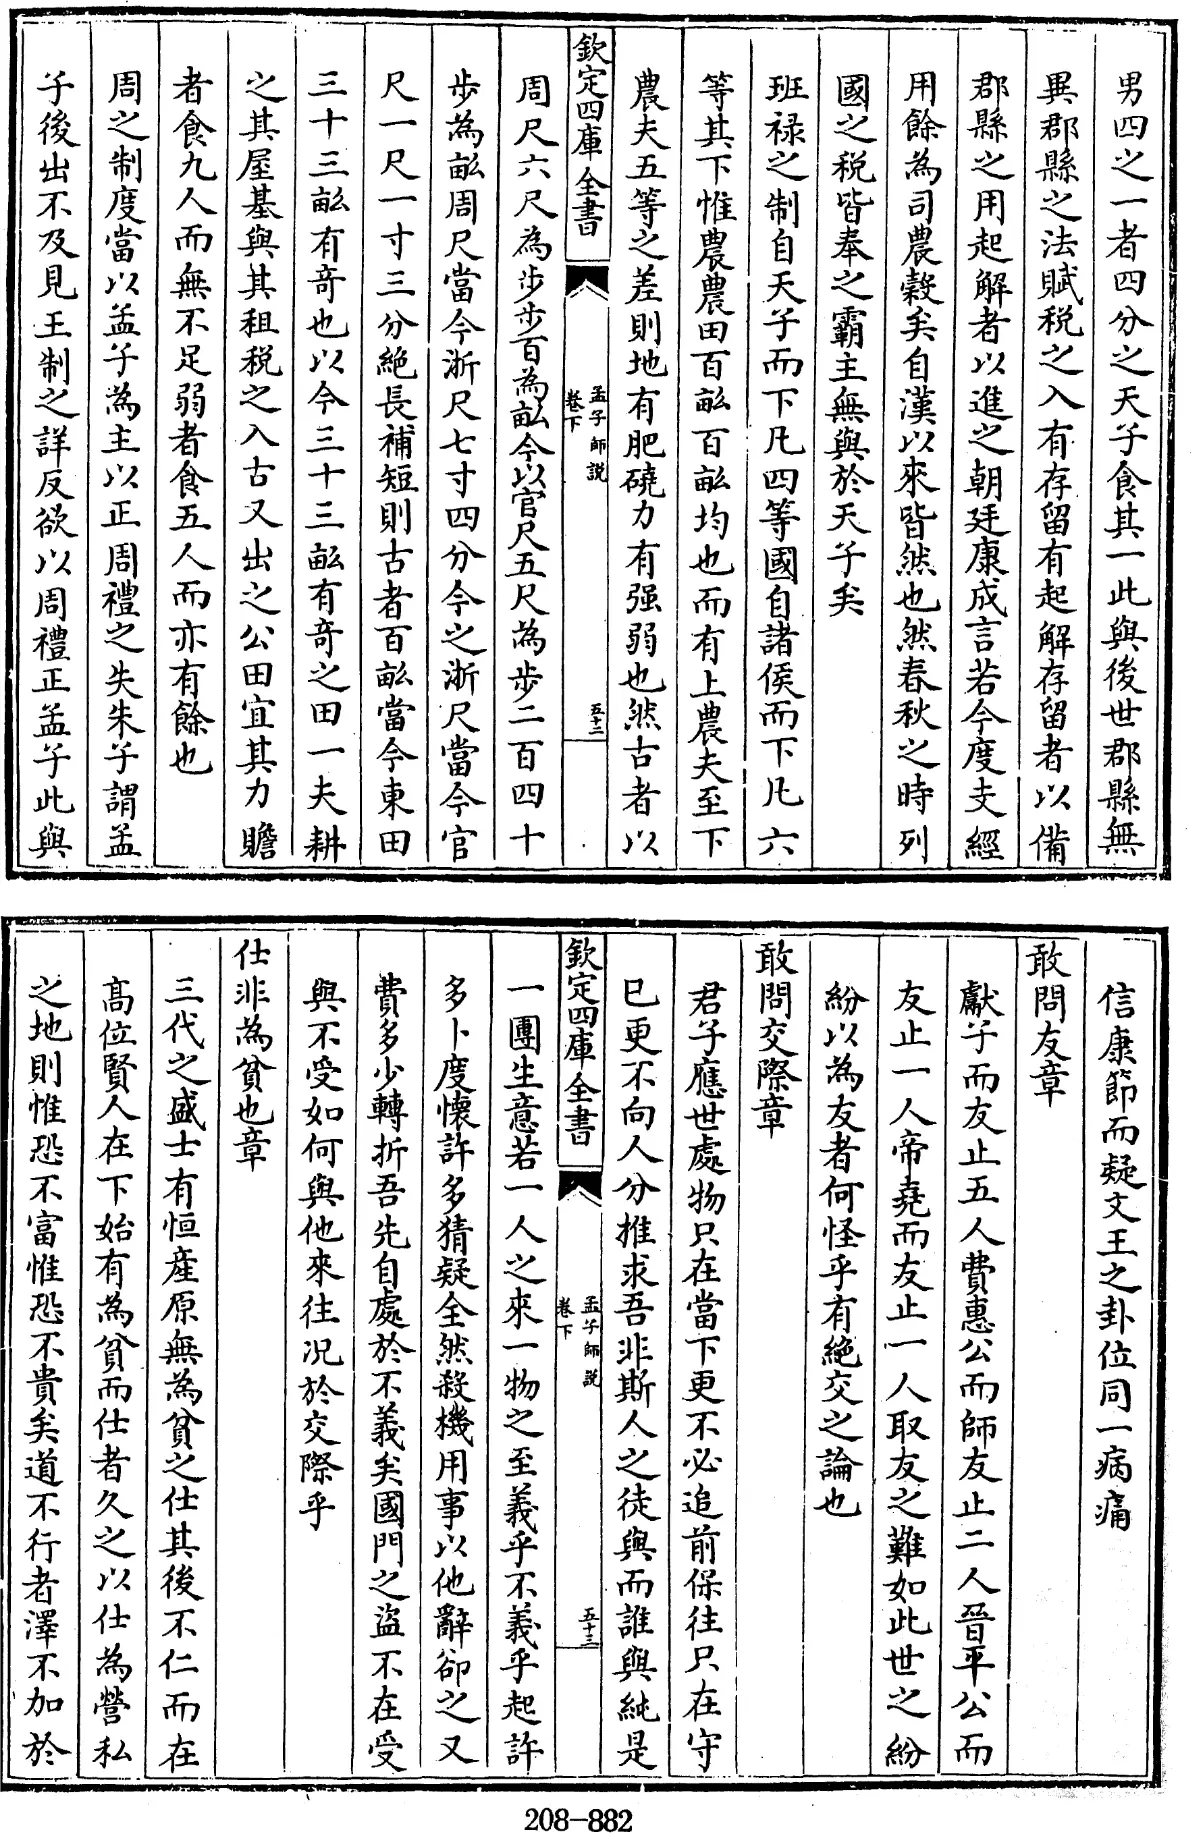 男四之一者四分之天子食其一此與後世郡縣無
異郡縣之法賦稅之入有存留有起解存留者以備
郡縣之用起解者以進之朝廷康成言若今度支經
用餘為司農穀矣自漢以來皆然也然春秋之時列
國之稅皆奉之霸主無與於天子矣
班祿之制自天子而下凡四等國自諸侯而下凡六
等其下惟農農田百畝百畝均也而有上農夫至下
農夫五等之差則地有肥磽力有强弱也然古者以
欽定四庫全書
孟子師說
卷下
五十二
周尺六尺為步步百為畝今以官尺五尺為步二百四十
步為畝周尺當今浙尺七寸四分今之浙尺當今官
尺一尺一寸三分絕長補短則古者百畝當今東田
三十三畝有奇也以今三十三畝有奇之田一夫耕
之其屋基與其租稅之入古又出之公田宜其力贍
者食九人而無不足弱者食五人而亦有餘也
周之制度當以孟子為主以正周禮之失朱子謂孟
子後出不及見王制之詳反欲以周禮正孟子此與
信康節而疑文王之卦位同一病痛
敢問友章
獻子而友止五人費惠公而師友止二人晉平公而
友止一人帝堯而友止一人取友之難如此世之紛
紛以為友者何怪乎有絕交之論也
敢問交際章
君子應世處物只在當下更不必追前保往只在守
已更不向人分推求吾非斯人之徒與而誰與純是
欽定四庫全書
孟子師說
卷下
五十三
一團生意若一人之來一物之至義乎不義乎起許
多卜度懷許多猜疑全然殺機用事以他辭卻之又
費多少轉折吾先自處於不義矣國門之盜不在受
與不受如何與他來往况於交際乎
仕非為貧也章
三代之盛士有恒產原無為貧之仕其後不仁而在
高位賢人在下始有為貧而仕者久之以仕為營私
之地則惟恐不富惟恐不貴矣道不行者澤不加於
208-882